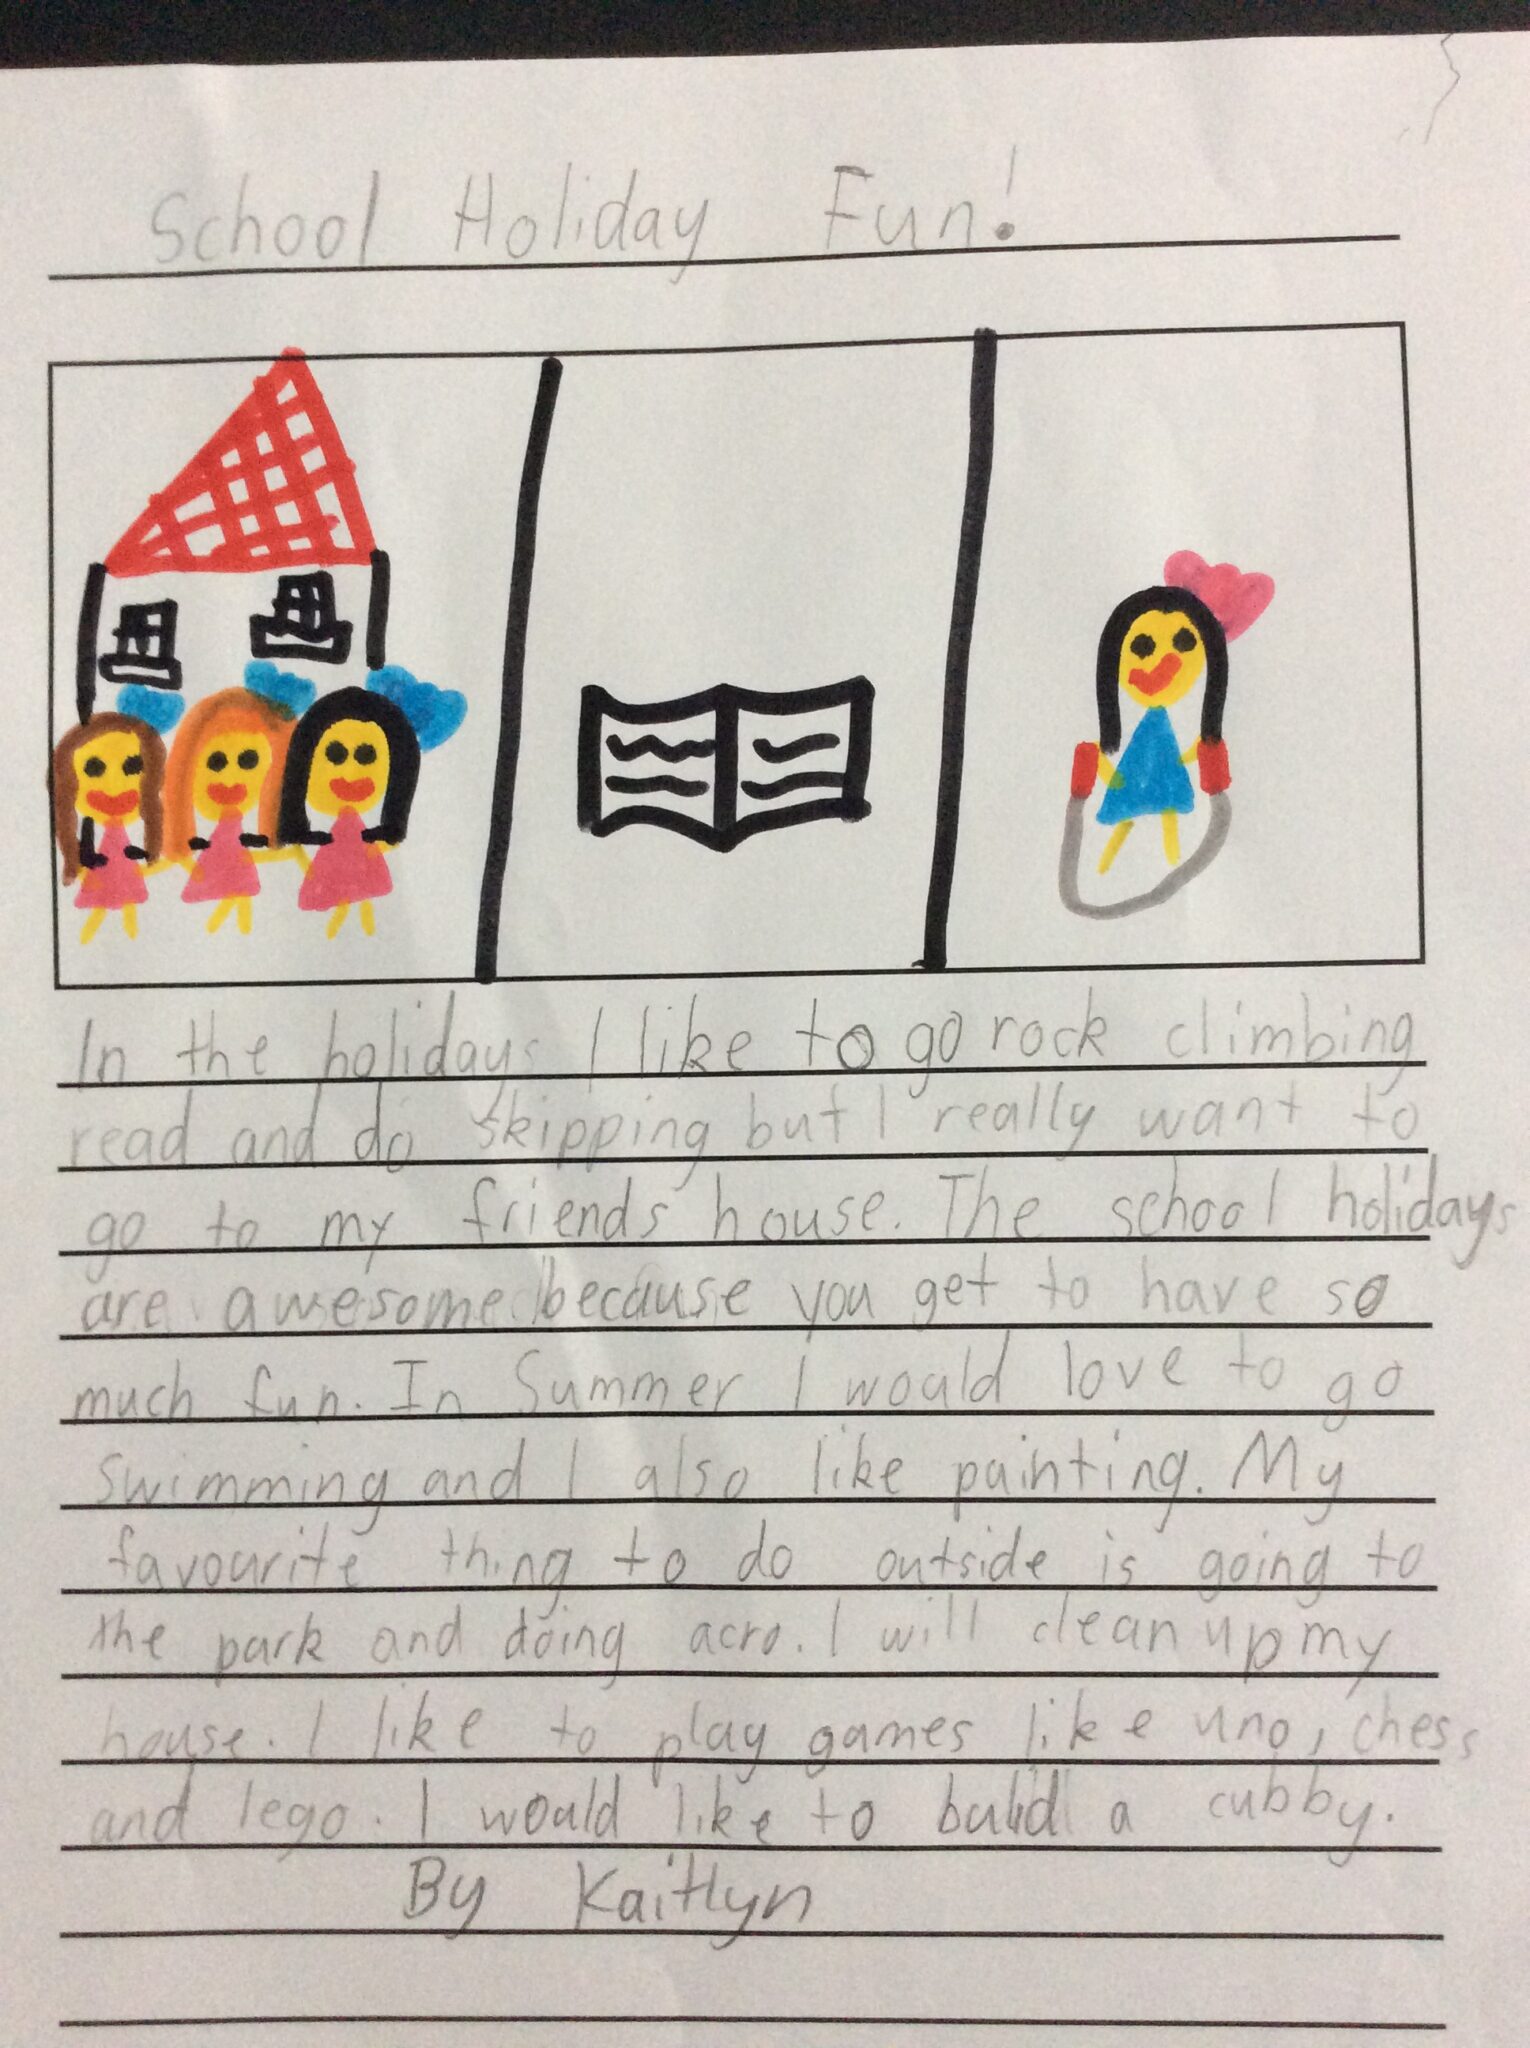 School Holiday Fun!
In the holidays I like to go rock climbing
read and do skipping but I really want to
go to my friends house. The school holidays
are awesome because you get to have so
much fun. In Summer I would love to go
swimming and I also like painting. My
favourite thing to do outside is going to
the park and doing acro. I will clean up my
house. I like to play games like uno, chess
and lego. I would like to build a cubby.
By Kaitlyn